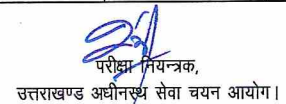 परीक्षा नियन्त्रक,
उत्तराखण्ड अधीनस्थ सेवा चयन आयोग।